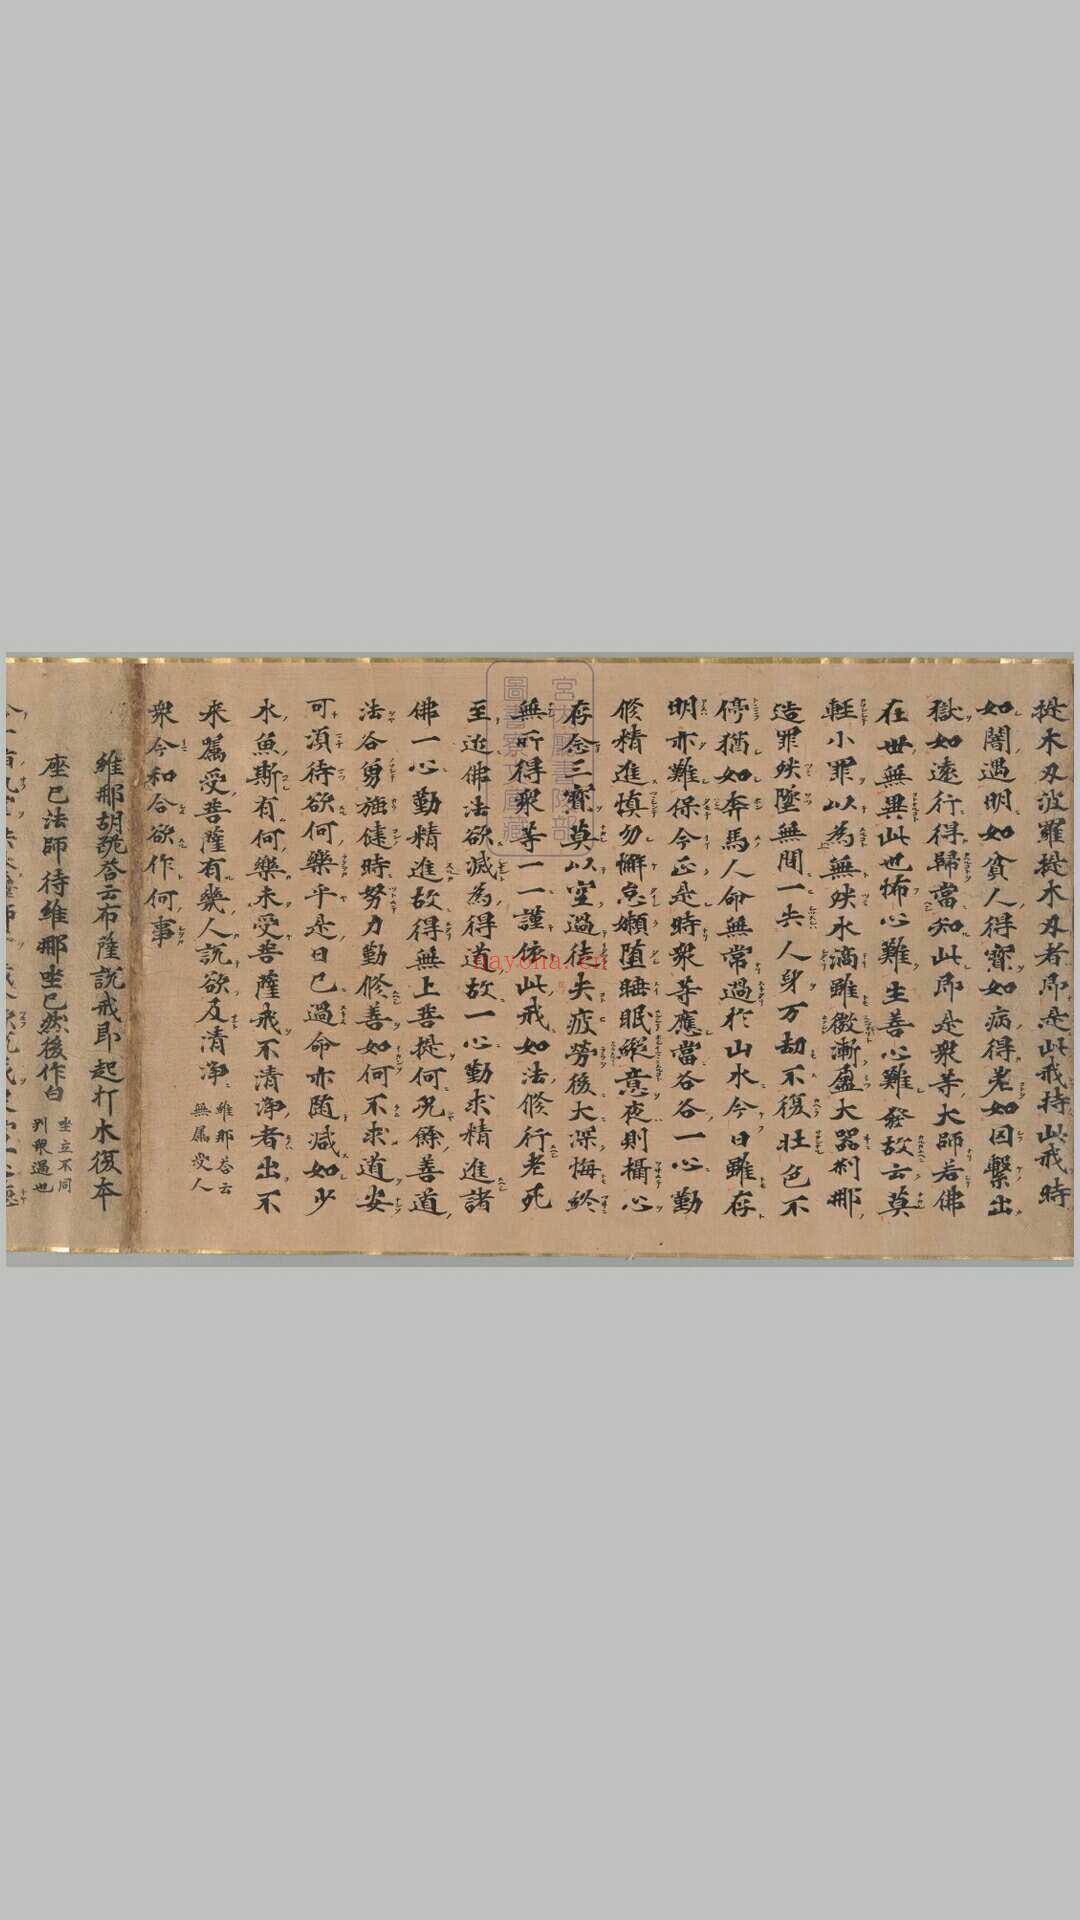 提木叉波羅提木叉者即是此戒持此戒時
如闇遇明如貧人得寳如病得差如囚繫出
獄如遠行得歸當知此即是衆等大師若佛
在世無異此也怖心難生善心難發故云莫
輕小罪以為無殃水滴雖微漸盈大器刹那
造罪殃墜無間一失人身万劫不復壮色不
停猶如奔馬人命無常過於山水今日雖存
明亦難保今正是時衆等應當各各一心勤
修精進慎勿懈怠嬾堕睡眠縱意夜則攝心
存念三寳莫以空過徒失疲勞後大深悔終
無所得衆等一一謹依此戒如法修行老死
至近佛法欲滅為得道故一心勤求精進諸
佛一心勤精進故得無上菩提何况餘善道
法各勇強健時努力勤修善如何不求道安
可湏待欲何樂乎是日已過命亦随减如少
水魚斯有何樂未受菩薩戒不清淨者出不
来属受菩薩有幾人説欲及清淨 維那荅云無属受人
衆今和合欲作何事
維那胡跪荅云布薩説戒即起打木復本
座已法師待維那坐已然後作白 坐立不同判衆過也
宮内廳書陵部
圖書寮文庫藏
nayona.cn